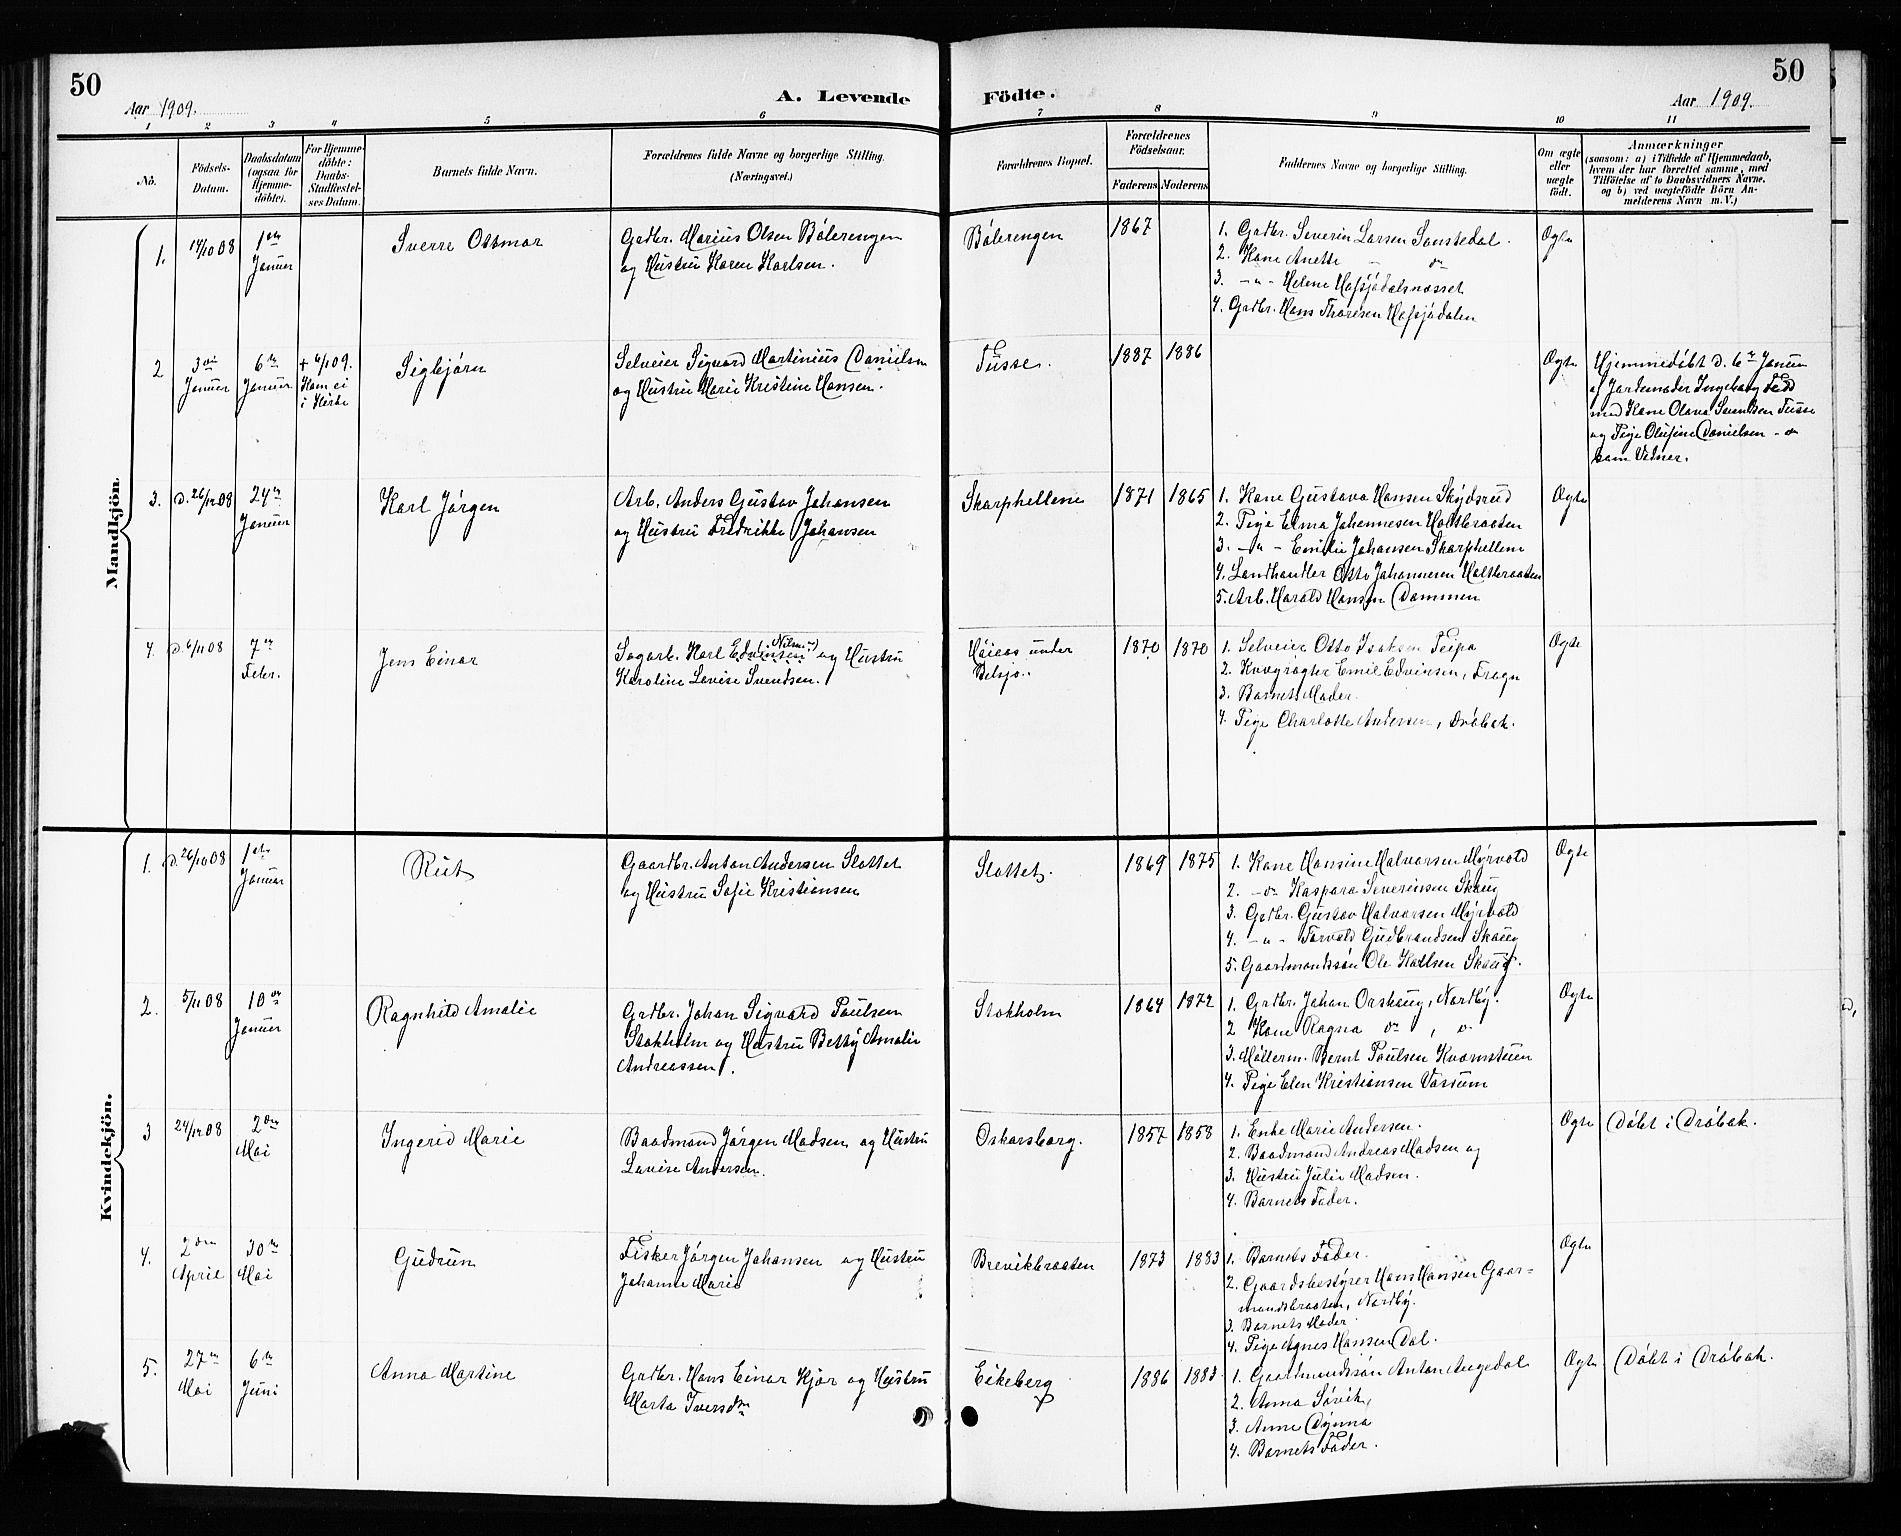 50
50
Aar 1909.
A. Levende Födte.
Aar 1909.
1 2 3 4 5 6 7 8 9 10 11
No.
Födsels-Datum.
Daabsdatum (ogsaa for Hjemme-döbte).
For Hjemme-döbte: Daabs-Stadfæstel-ses Datum.
Barnets fulde Navn.
Forældrenes fulde Navne og borgerlige Stilling.
(Næringsvei.)
Forældrenes Bopæl.
Forældrenes Födselsaar.
Faderens
Moderens
Faddernes Navne og borgerlige Stilling.
Om ægte eller uægte födt.
Anmærkninger
(saasom: a) i Tilfælde af Hjemmedaab,
hvem der har forrettet samme, med
Tilföielse af to Daabsvidners Navne,
og b) ved uægtefödte Börn An-
melderens Navn m. V.)
Mandkjön.
1. 14/10 08 1ste Januar Sverre Ottmar
Grdbr. Marius Olsen Bölerengen
og Hustru Karen Karlsen.
Bölerengen 1867
1. Grdbr. Severin Larsen Sonstedal.
2. Kone Anette - do
3. -"- Helene Hofsjödalsnæsset
4. Grdbr. Hans Thoresen Hofsjödalen
Ægte
2 3die Januar 6te Januar + 6/1 09. Kom ei i Kirke Sigbjörn
Selveier Sigvard Martinius Danielsen
og Hustru Marie Kristine Hansen.
Tusse. 1887 1886
Ægte
Hjemmedöbt d. 6te Januar
af Jordemoder Ingeborg
med Kone Olava Svendsen Tusse
og Pige Olufine Danielsen - do
som Vidner.
3. d. 26/12 08 24de Januar Karl Jörgen
Arb. Anders Gustav Johansen
og Hustru Fredrikke Johansen
Skorphellene 1871 1865
1. Kone Gustava Hansen Skydsrud
2. Pige Elma Johannesen Holtbraaten
3. -"- Emilie Johansen Skarphellene
4. Landhandler Otto Johannesen Holtbraaten
5. Arb. Harald Hansen Dammen
Ægte
4. d. 6/11 08 7de Febr. Jens Einar
Sagarb. Karl Edvinsen og Hustru
Karoline Lovise Svendsen.
Höieas under Belsjö. 1870 1870
1. Selveier Otto Isaksen Teipa
2. Kvægrögter Emil Edvinsen, Frogn
3. Barnets Moder.
4. Pige Charlotte Andersen, Dröbak.
Ægte
Kvindekjön.
1. d. 26/10 08 1ste Januar Rut
Gaardbr. Anton Andersen Slottet
og Hustru Sofie Kristiansen
Slottet. 1869 1875
1. Kone Hansine Halvorsen Myrvold
2. -do- Kaspara Severinsen Skaug
3. Grdbr. Gustav Halvorsen Myrvold
4. -"- Torvald Gudbrandsen Skaug
5. Gaardmandssön Ole Karlsen Skaug.
Ægte
2. 5/11 08 10de Januar Ragnhild Amalie
Grdbr. Johan Sigvard Poulsen
Stokholm og Hustru Betty Amalie
Andreassen.
Stokholm 1864 1872
1. Grdbr. Johan Orskaug, Nordby.
2 Kone Ragna do, do
3. Möllerm. Bernt Poulsen Kvarnstuen
4. Pige Elen Kristiansen Vassum
Ægte
3 24/12 08 2den Mai Ingerid Marie
Baadmand Jörgen Madsen og Hustru
Lovise Andersen.
Oskarsborg. 1857 1858
1. Enke Marie Andersen.
2. Baadmand Andreas Madsen og
3. Hustru Julie Madsen.
4. Barnets Fader.
Ægte Döbt i Dröbak.
4. 2den April 30te Mai Gudrun
Fisker Jörgen Johansen og Hustru
Johanne Marie
Brevikbraaten 1873 1883
1. Barnets Fader.
2. Gaardsbestyrer Hans Hansen Gaar=
mandsbraaten, Nordby.
3. Barnets Moder
4. Pige Agnes Hansen Dal.
Ægte
5. 27de Mai 6te Juni Anna Martine
Grdbr. Hans Einar Kjær og Hustru
Marta Iversdtr
Eikeberg 1886 1883
1. Gaardmandssön Anton Augedal
2. Anna Sövik,
3. Anne Dynna
4. Barnets Fader.
Ægte Döbt i Dröbak.